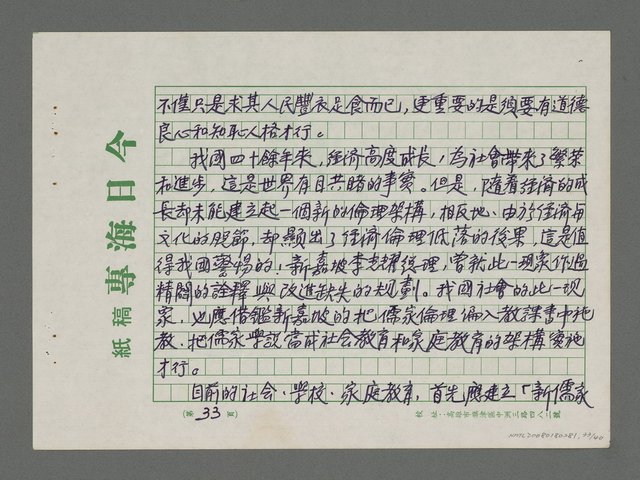 不僅只是求其人民豐衣足食而已，更重要的是須要有道德
良心和知恥人格才行。
我國四十餘年來，经濟高度成長，為社會帶來了繁荣
和進步，這是世界有目共睹的事實。但是，隨着经濟的成
長却未能建立起一個新的倫理架構，相反地、由於经濟与
文化的脫節，却顯出了经濟倫理低落的後果，這是值
得我國警惕的！新嘉坡李光耀總理，曾就此一現象作過
精闢的詮釋與改進缺失的規劃。我國社會的此一現
象，也應借鑑新嘉坡的把儒家倫理编入教課書中施
教、把儒家學說當成社會教育和家庭教育的架構實施
才行。
目前的社会、學校、家庭教育，首先應建立「新儒家
今日海專
稿紙
(第33頁)
校址·高雄市旗津區中洲三路四八二號
NMTL20080180281, 33/40